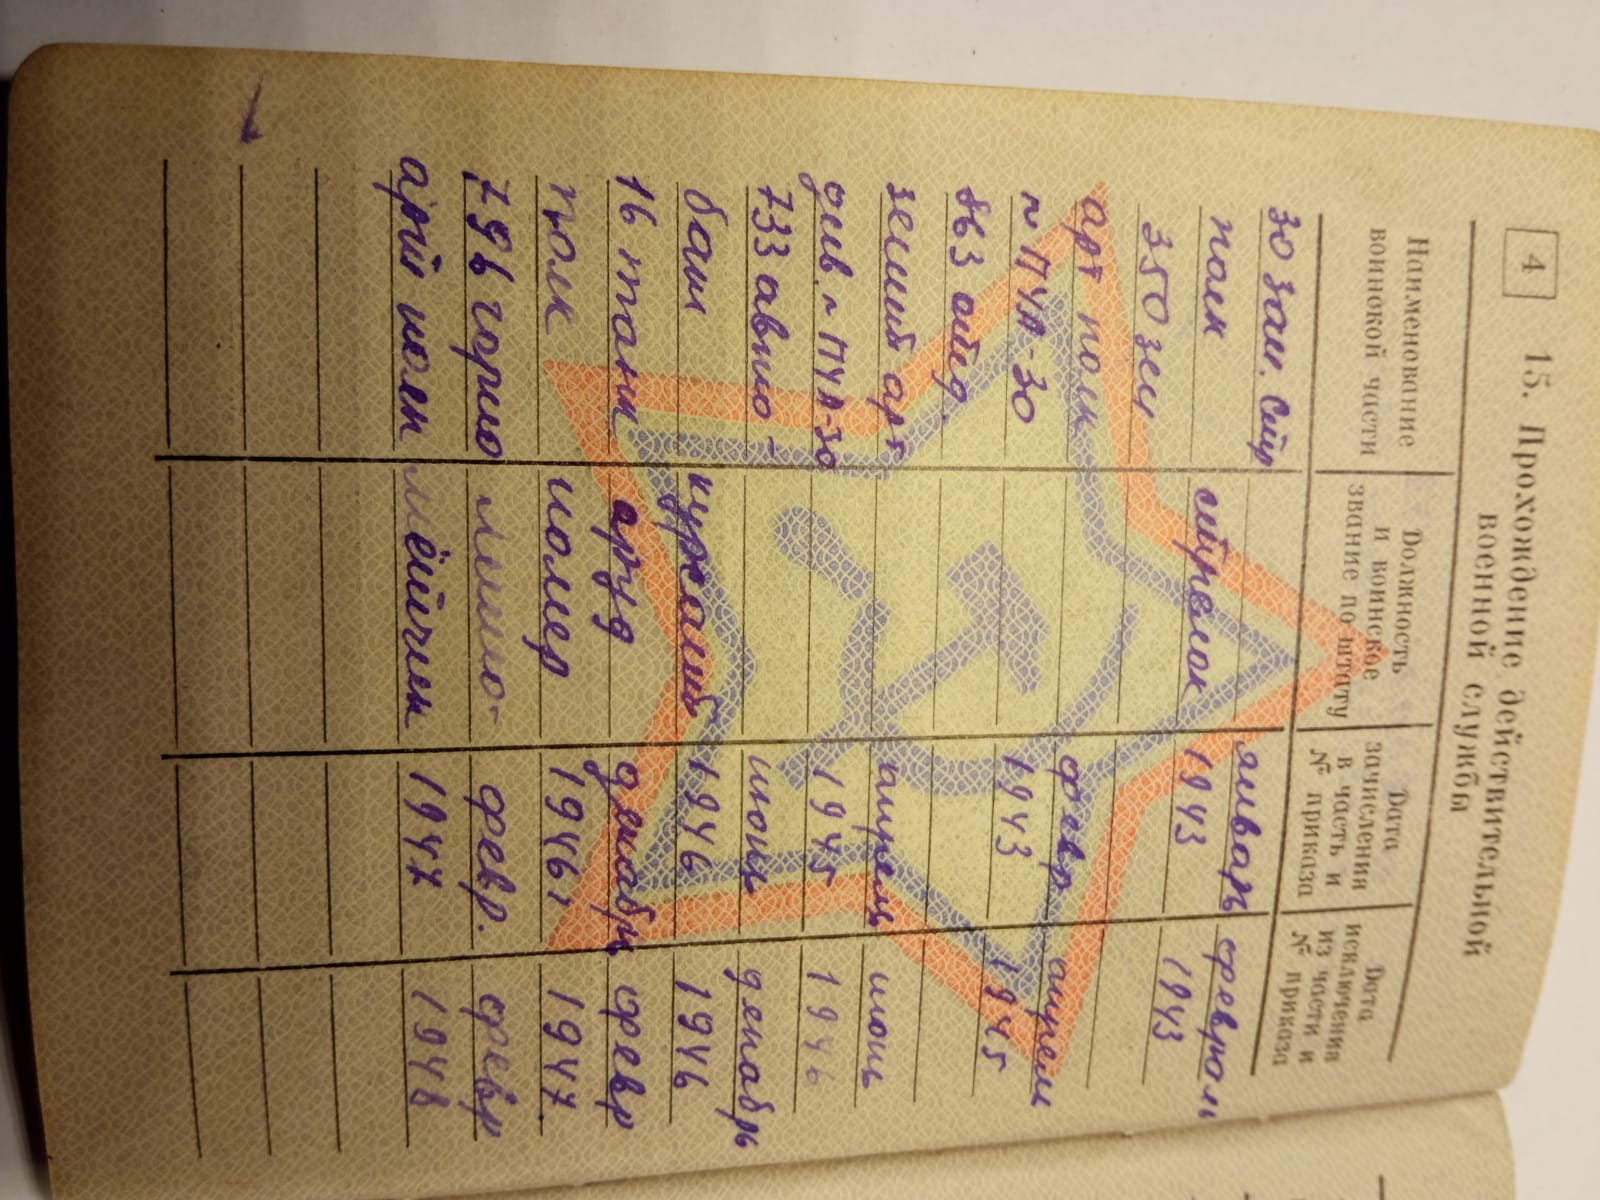 4
15. Прохождение действительной
военной службы
Наименование
воинской части
Должность
и воинское
звание по штату
Дата
зачисления
в часть и
№ приказа
Дата
исключения
из части и
№ приказа
30 зап. стр
январь
феврал
полк
стрелок
1943
1943
350 зен
арт полк
февр
апрел
ПУА-30
1943
1945
863
зенит арт
апрель
июнь
ПУА-30
1945
1946
733 авто-
июнь
декабрь
бат
курсант
1946
1946
16 танк
оруд
декабрь
февр
полк
номер
1946
1947.
796 горно
мино-
февр.
февр
арт полк
мётчик
1947
1948